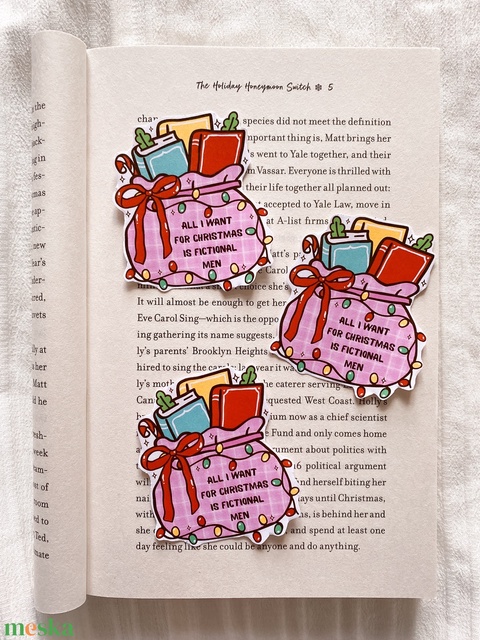 The Holiday Honeymoon Switch ❄ 5
species did not meet the definition
mportant thing is, Matt brings her
s went to Yale together, and their
n Vassar. Everyone is thrilled with
their life together all planned out:
accepted to Yale Law, move in
at A-list firms
ALL I WANT
FOR CHRISTMAS
IS FICTIONAL
MEN
It will almost be enough to get her
Eve Carol Sing—which is the oppo
ing gathering its name suggests.
ly's parents' Brooklyn Heights
hired to sing the
year it wa
ly's moth
the caterer serving
equested West Coast. Holly's
ium now as a chief scientist
Fund and only comes home
argument about politics with
16 political argument
nd herself biting her
days until Christmas,
with
is behind her and
she
and spend at least one
day feeling like she could be anyone and do anything.
ALL I WANT
FOR CHRISTMAS
IS FICTIONAL
MEN
ALL I WANT
FOR CHRISTMAS
IS FICTIONAL
MEN
meska